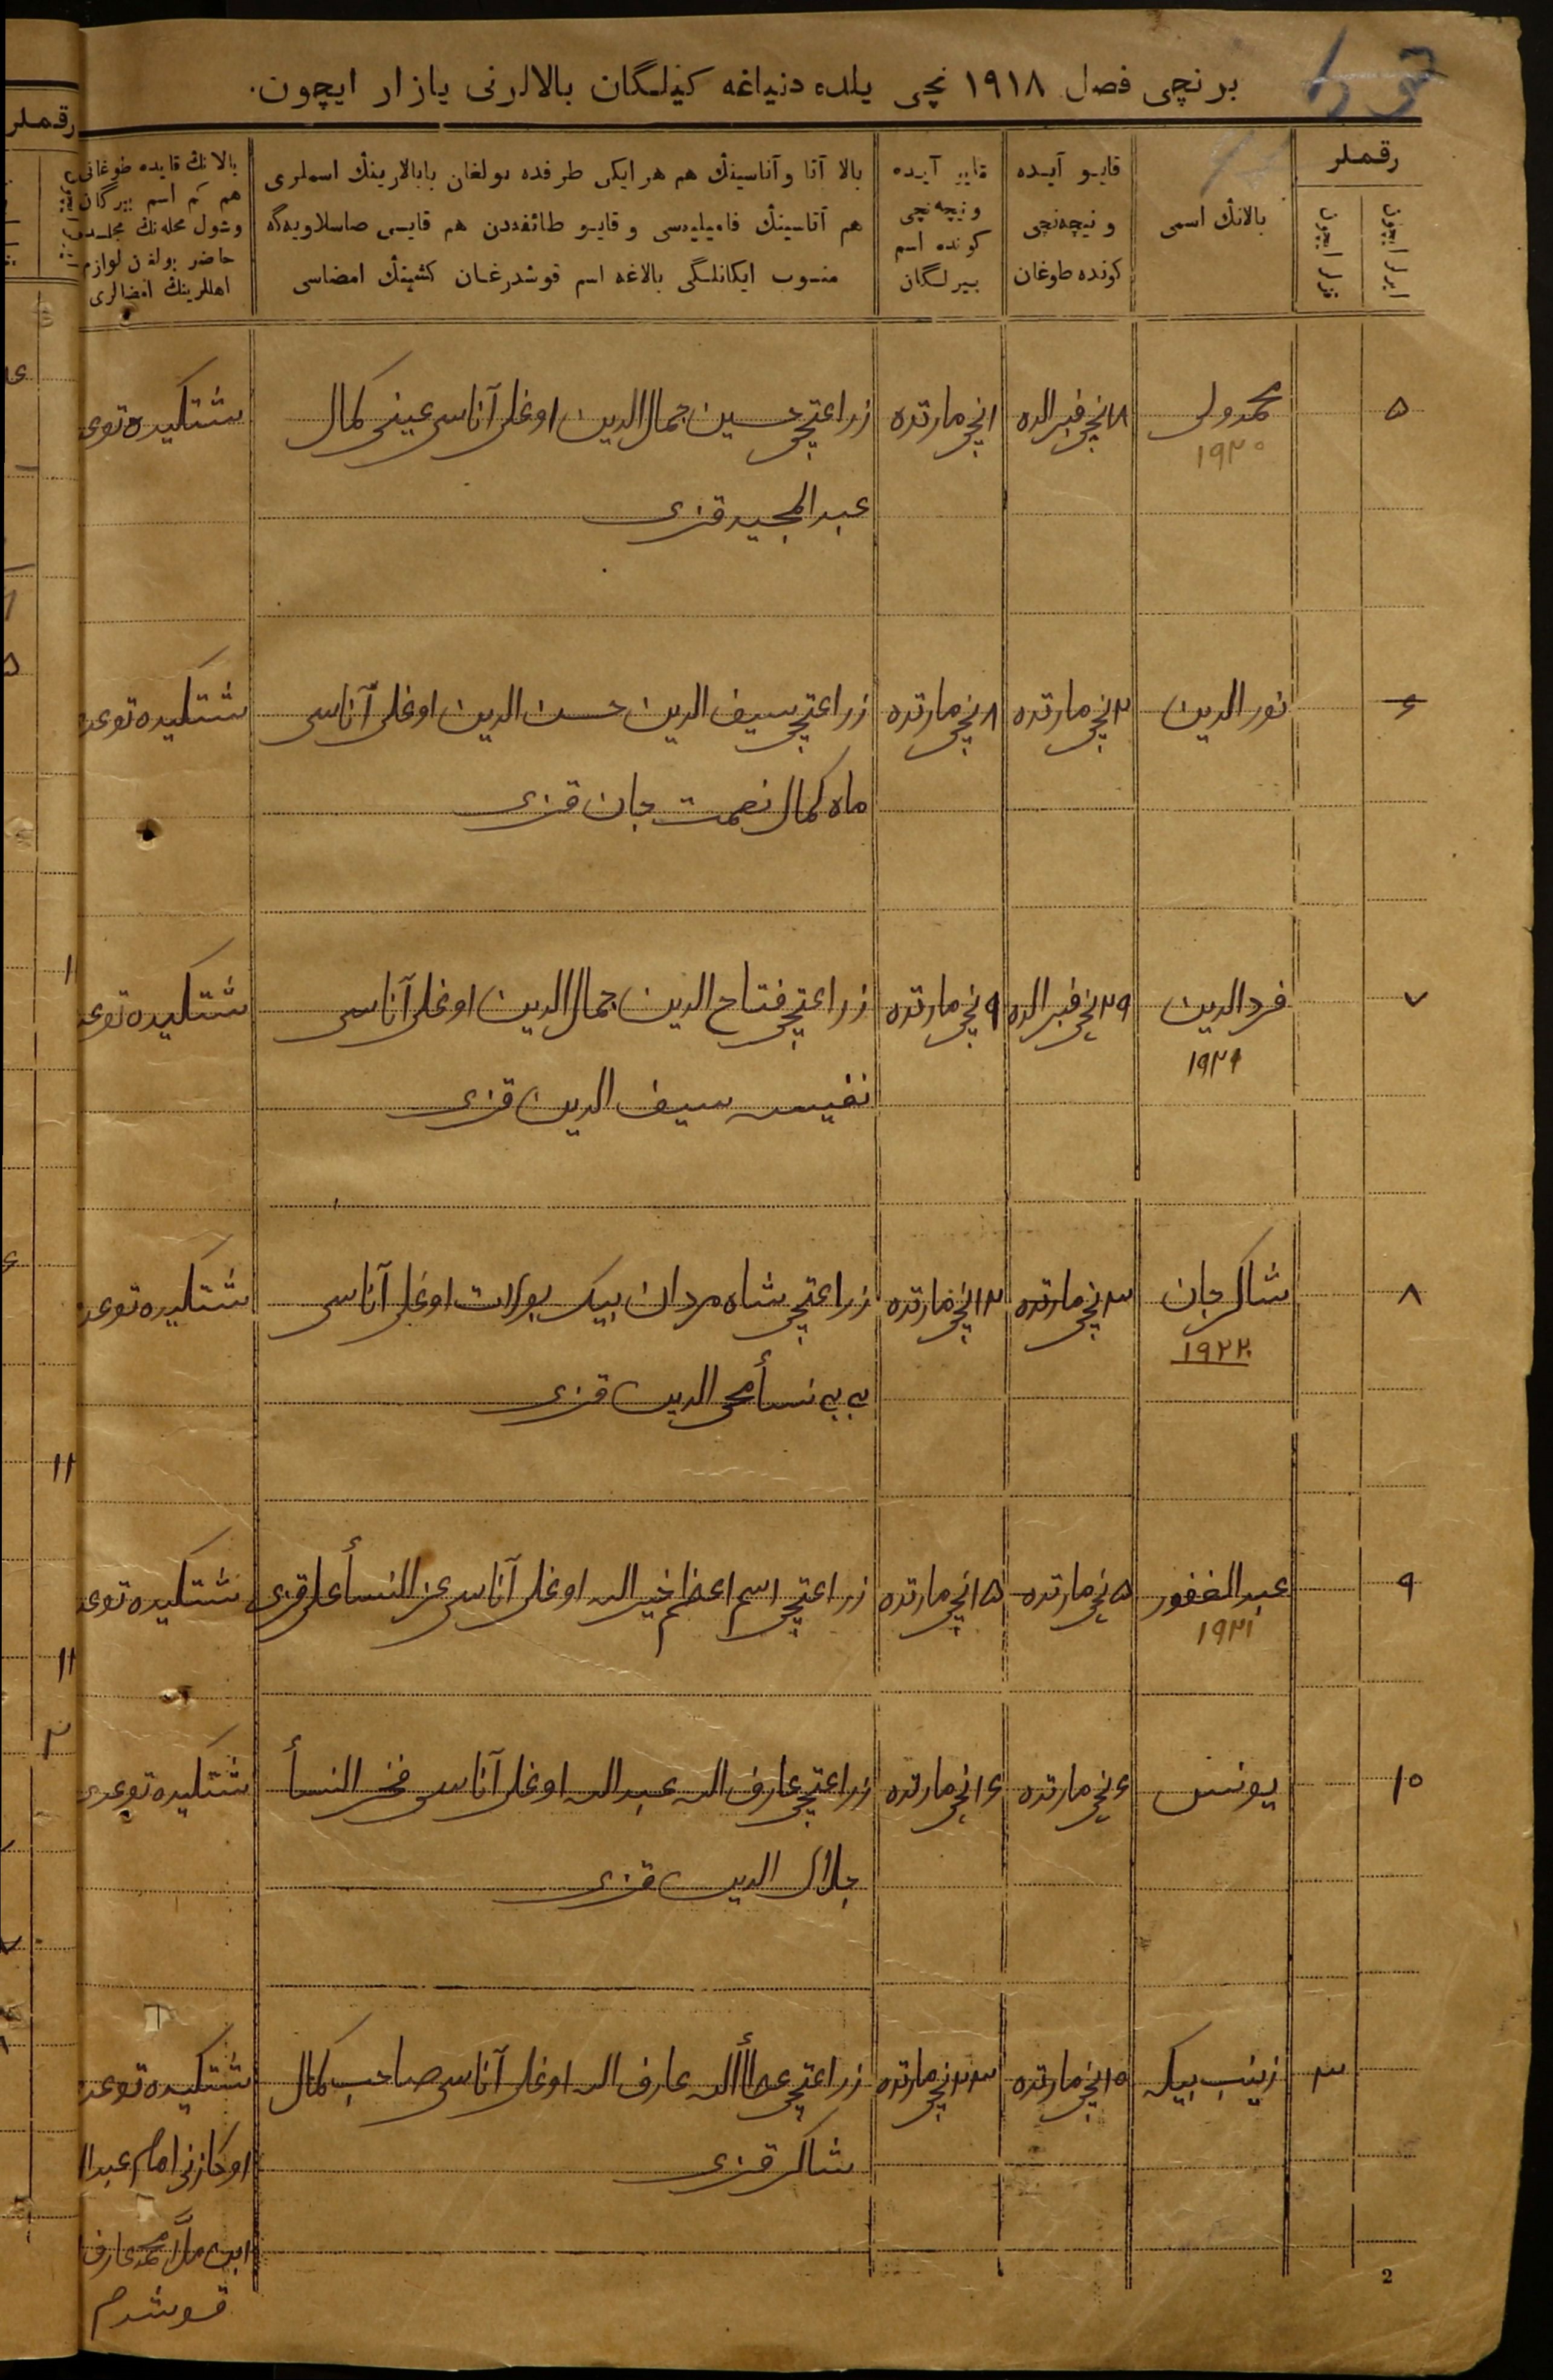 برنچی فصل ۱۹۱۸ نچی یلده دنیاغه کیلگان بالالرنی یازار ایچون.
رقملر
ایرلر ایچون
قزلر ایچون
بالانڭ اسمی
قایو آیده
و نیچه‌نچی
کونده طوغان
قایو آیده
و نیچه‌نچی
کونده اسم
بیرلگان
بالا آتا و آناسینڭ هم هر ایکی طرفده بولغان بابالارینڭ اسملری
هم آتاسینڭ فامیلیه‌سی و قایو طائفه‌دن هم قایسی صاسلاویه‌گه
منسوب ایکانلگی بالاغه اسم قوشدرغان کشینڭ امضاسی
بالانڭ قایده طوغانی
هم کم اسم بیرگان
وشول محله‌نڭ مجلسده
حاضر بولغن لوازم
اهللرینڭ امضالری
۵ محمدولی ۱۸نچی فبرالده ۱نچی مارتده زراعتچی حسین جمال‌الدین اوغلی آناسی عینی کمال شتکیده توعدی
۱۹۲۰
عبدالمجید قزی
۶ نورالدین ۲نچی مارتده ۸نچی مارتده زراعتچی سیف الدین حسن الدین اوغلی آناسی شتکیده توعد
ماه کمال نعمت جان قزی
۷ فردالدین ۲۹نچی فبرالده ۹نچی مارتده زراعتچی فتاح الدین جمال‌الدین اوغلی آناسی شتکیده توعد
۱۹۲۱
نفیسه سیف الدین قزی
۸ شاکرجان ۳نچی مارتده ۱۲نچی مارتده زراعتچی شاه مردان بیک بولات اوغلی آناسی شتکیده توعد
۱۹۲۲
بی بی نسأ محی الدین قزی
۹ عبدالغفور ۵نچی مارتده ۱۵نچی مارتده زراعتچی اسم اعظم خیرالله اوغلی آناسی عزالنسأ علی قزی شتکیده توعد
۱۹۲۱
۱۰ یونس ۶نچی مارتده ۱۶نچی مارتده زراعتچی عارف الله عبدالله اوغلی آناسی فخرالنسأ شتکیده توعدی
جلال الدین قزی
۳ زینب بیکه ۱۵نچی مارتده ۲۳نچی مارتده زراعتچی عطأالله عارف الله اوغلی آناسی صاحب کمال شتکیده توعد
شاکر قزی
اوکازنی امام عبدا
ابن ملا محمدعارف
قوشدم
2